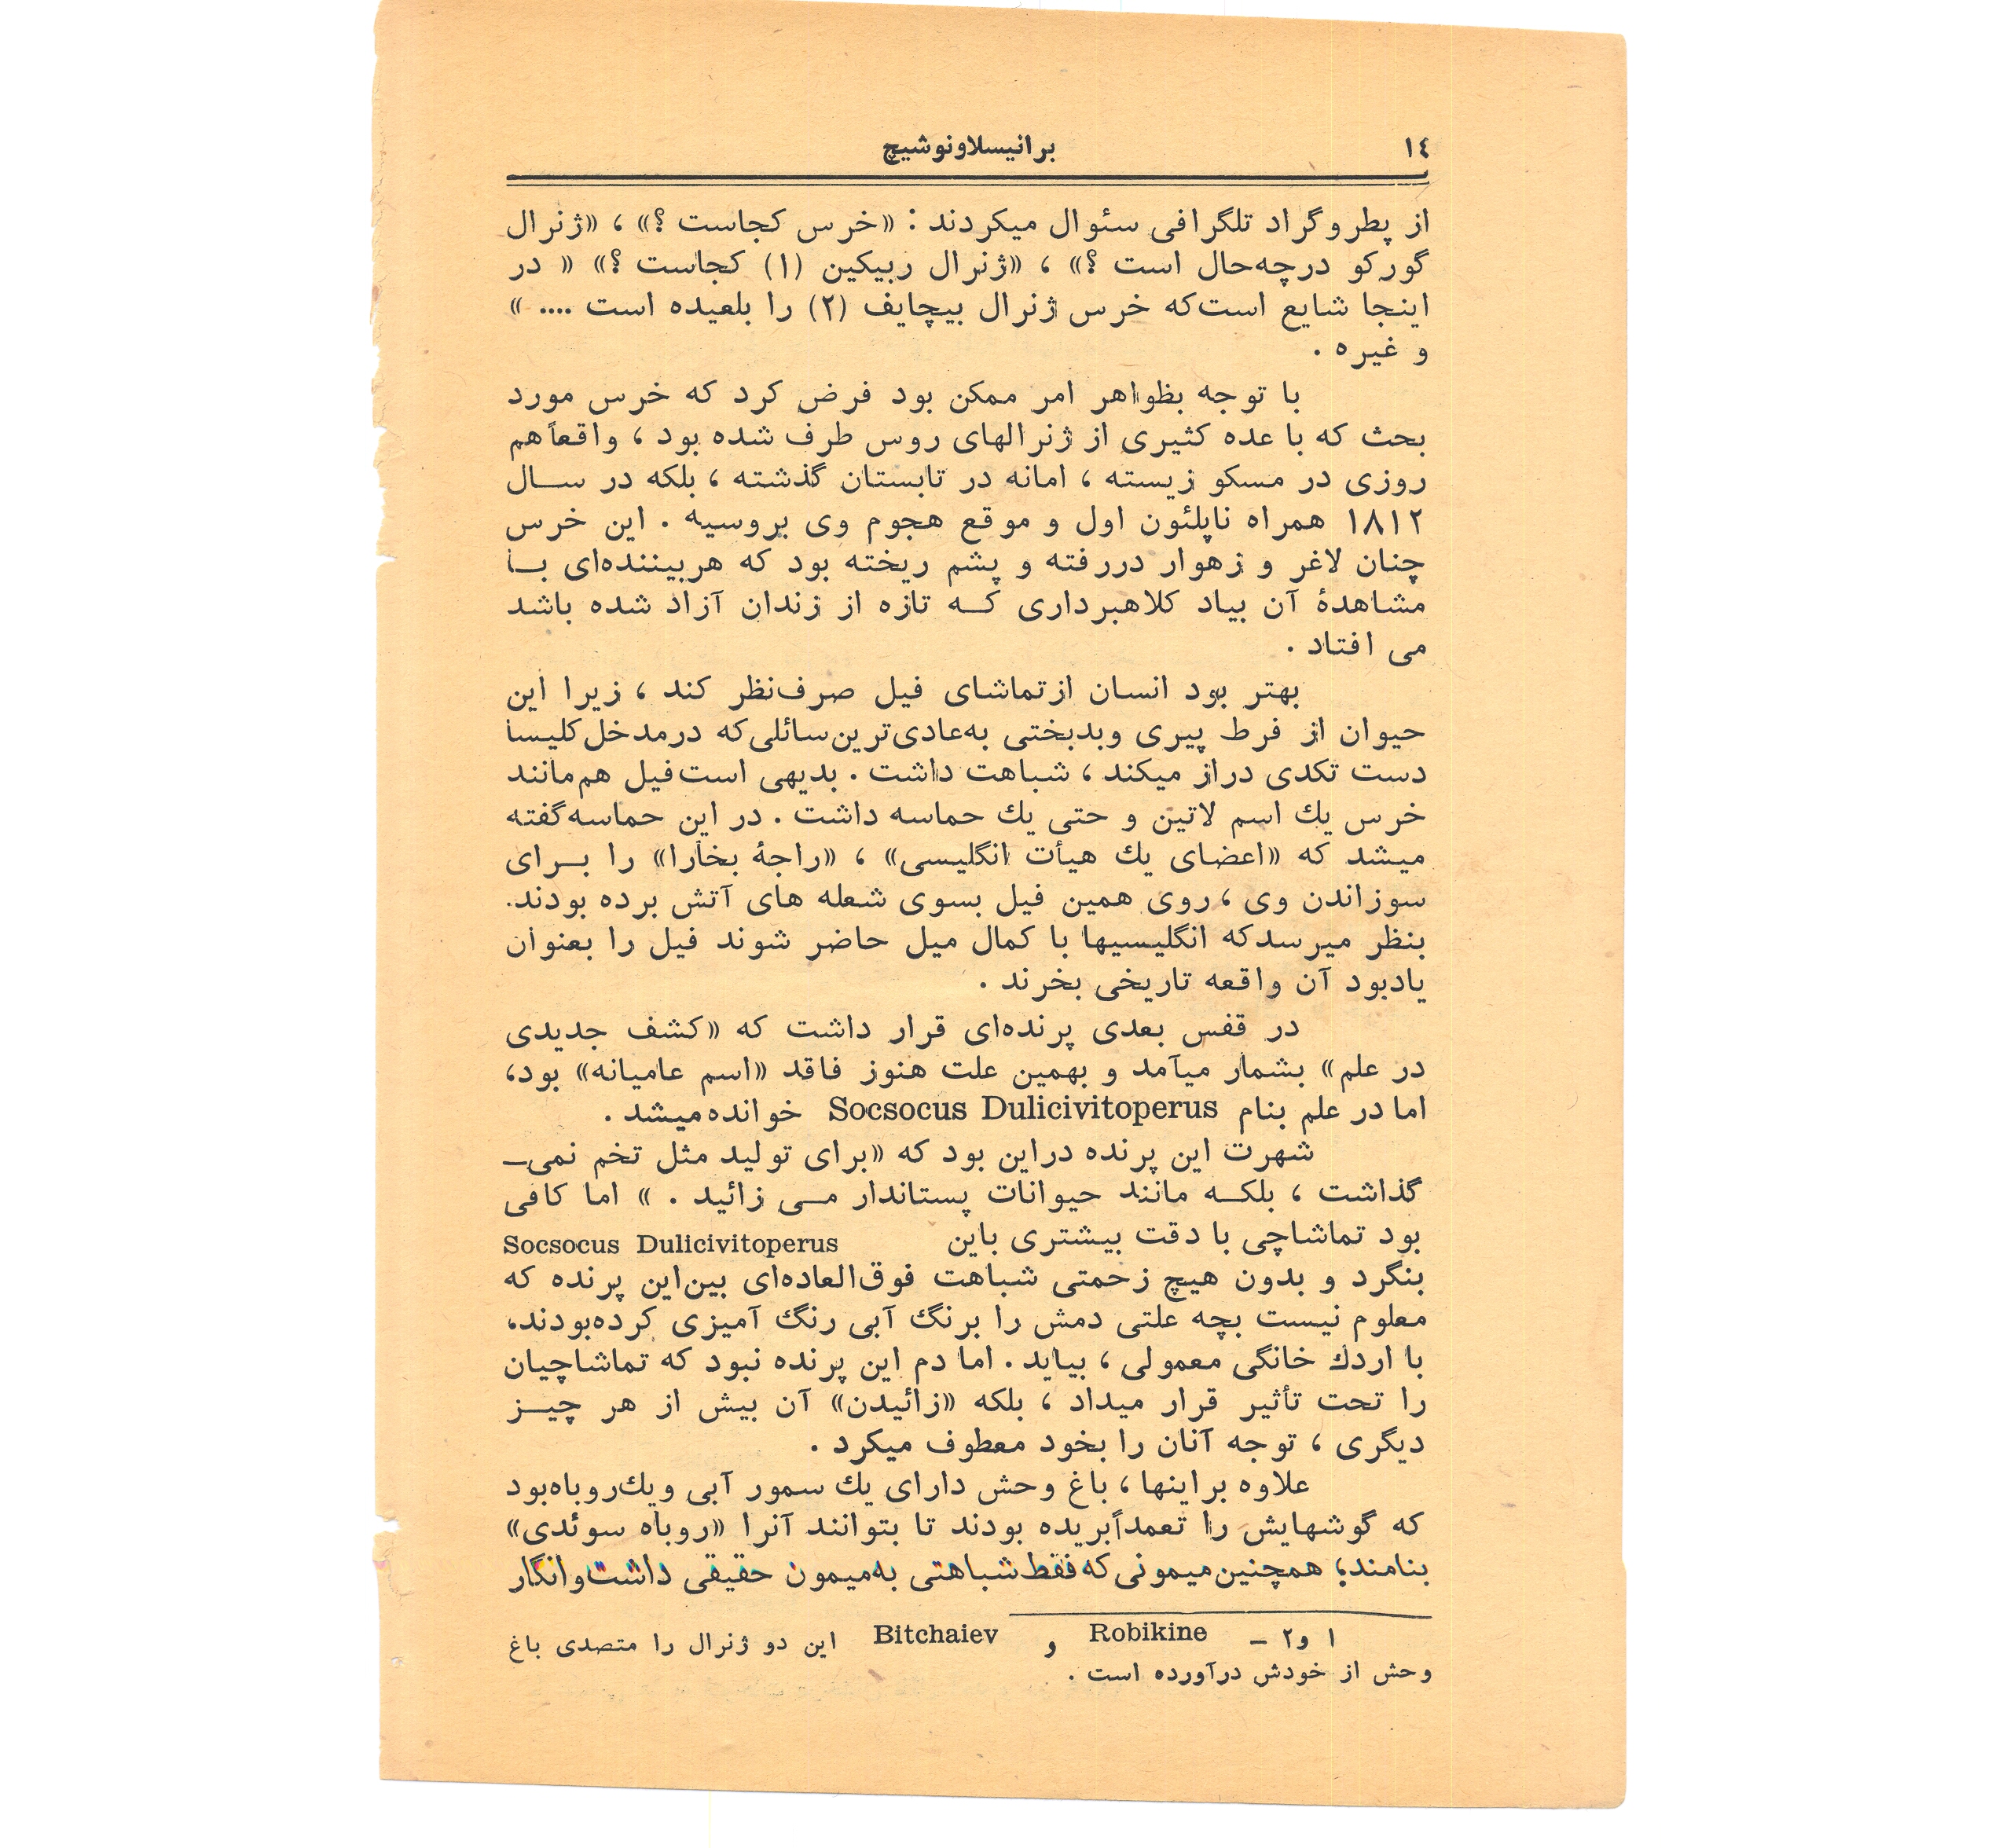 ١٤
برانیسلاونوشیچ
از پطروگراد تلگرافی سئوال میکردند : «خرس کجاست ؟» ، «ژنرال
گورکو درچه‌حال است ؟» ، «ژنرال ربیکین (۱) کجاست ؟» « در
اینجا شایع است‌که خرس ژنرال بیچایف (۲) را بلعیده است .... »
و غیره .
با توجه بظواهر امر ممکن بود فرض کرد که خرس مورد
بحث که با عده کثیری از ژنرالهای روس طرف شده بود ، واقعاً هم
روزی در مسکو زیسته ، امانه در تابستان گذشته ، بلکه در ســال
۱۸۱۲ همراه ناپلئون اول و موقع هجوم وی بروسیه . این خرس
چنان لاغر و زهوار دررفته و پشم ریخته بود که هربیننده‌ای بــا
مشاهدهٔ آن بیاد کلاهبرداری کــه تازه از زندان آزاد شده باشد
می افتاد .
بهتر بود انسان ازتماشای فیل صرف‌نظر کند ، زیرا این
حیوان از فرط پیری وبدبختی به‌عادی‌ترین‌سائلی‌که درمدخل‌کلیسا
دست تکدی دراز میکند ، شباهت داشت . بدیهی است‌فیل هم‌مانند
خرس یك اسم لاتین و حتی یك حماسه داشت . در این حماسه‌گفته
میشد که «اعضای یك هیأت انگلیسی» ، «راجهٔ بخارا» را بــرای
سوزاندن وی ، روی همین فیل بسوی شعله های آتش برده بودند.
بنظر میرسدکه انگلیسیها با کمال میل حاضر شوند فیل را بعنوان
یادبود آن واقعه تاریخی بخرند .
در قفس بعدی پرنده‌ای قرار داشت که «کشف جدیدی
در علم» بشمار میآمد و بهمین علت هنوز فاقد «اسم عامیانه» بود،
اما در علم بنام Socsocus Dulicivitoperus خوانده‌میشد .
شهرت این پرنده دراین بود که «برای تولید مثل تخم نمی‌ـ
گذاشت ، بلکــه مانند حیوانات پستاندار مــی زائید . » اما کافی
بود تماشاچی با دقت بیشتری باین Socsocus Dulicivitoperus
بنگرد و بدون هیچ زحمتی شباهت فوق‌العاده‌ای بین‌این پرنده که
معلوم نیست بچه علتی دمش را برنگ آبی رنگ آمیزی کرده‌بودند،
با اردك خانگی معمولی ، بیابد . اما دم این پرنده نبود که تماشاچیان
را تحت تأثیر قرار میداد ، بلکه «زائیدن» آن بیش از هر چیــز
دیگری ، توجه آنان را بخود معطوف میکرد .
علاوه براینها ، باغ وحش دارای یك سمور آبی ویك‌روباه‌بود
که گوشهایش را تعمداً بریده بودند تا بتوانند آنرا «روباه سوئدی»
بنامند؛ همچنین‌میمونی‌که‌فقط‌شباهتی به‌میمون حقیقی داشت‌وانگار
۱ و۲ – Robikine و Bitchaiev این دو ژنرال را متصدی باغ
وحش از خودش درآورده است .